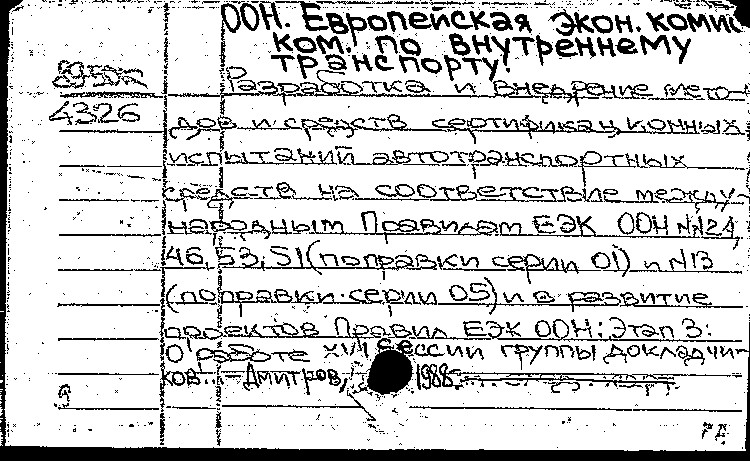 ООН. Европейская экон. комис
ком. по внутреннему
транспорту.
Разработка и внедрение мето-
4326
дов и средств сертификационных
испытаний автотранспортных
средств на соответствие между-
народным Правилам ЕЭК ООН №№24,
46, 53, 51 (поправки серии 01) и №13
(поправки серии 05) и в развитие
проектов Правил ЕЭК ООН: Этап 3:
О работе XVI сессии группы докладчи-
ков... – Дмитров, 1988.